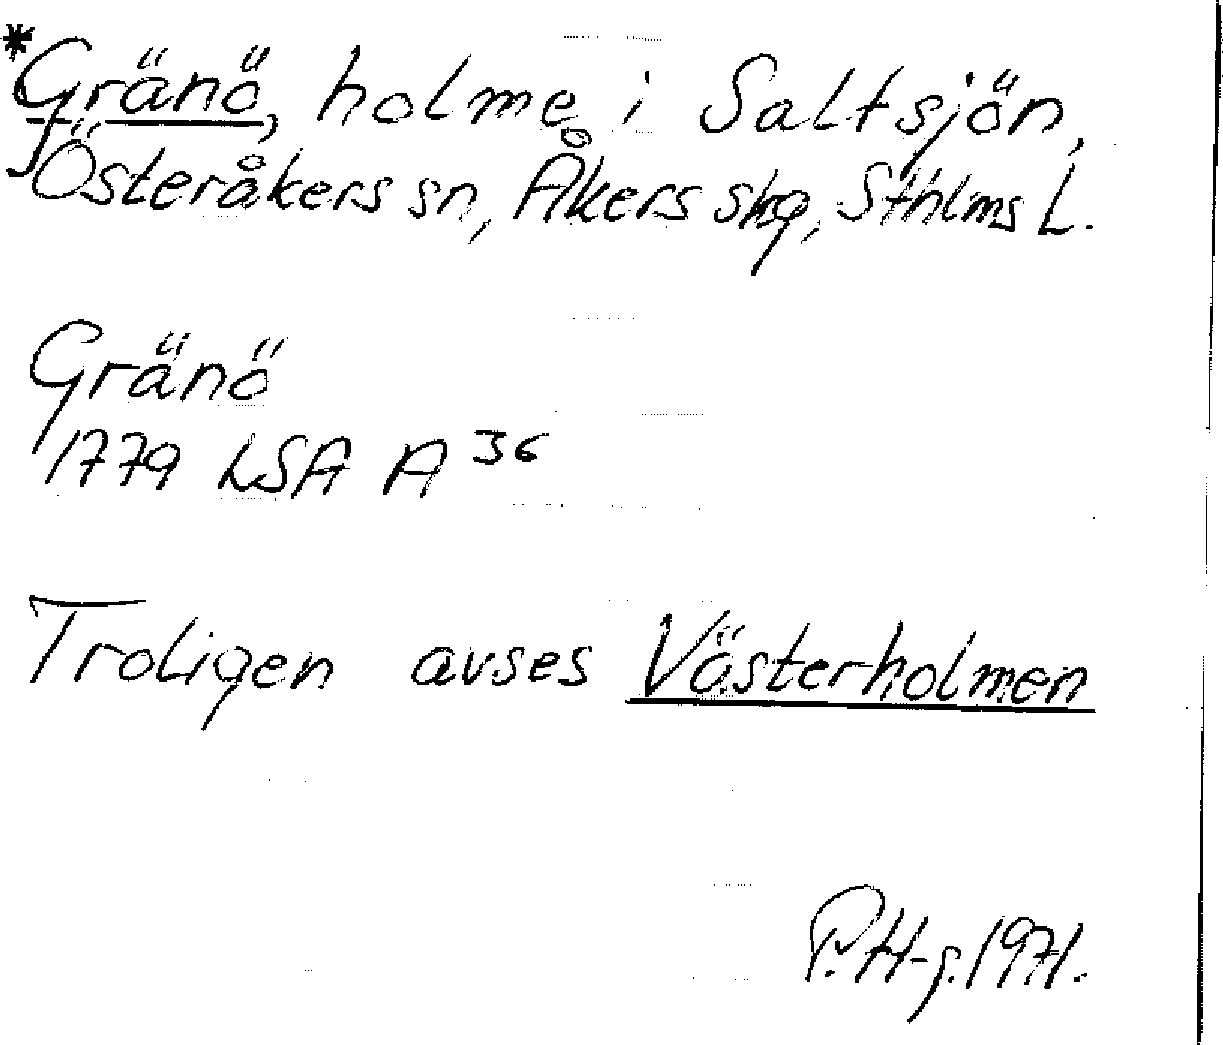 *Gränö, holme i Saltsjön,
Österåkers sn, Åkers skg, Sthlms L.
Gränö
1779 LSA A 36
Troligen avses Västerholmen
P. H-g. 1971.